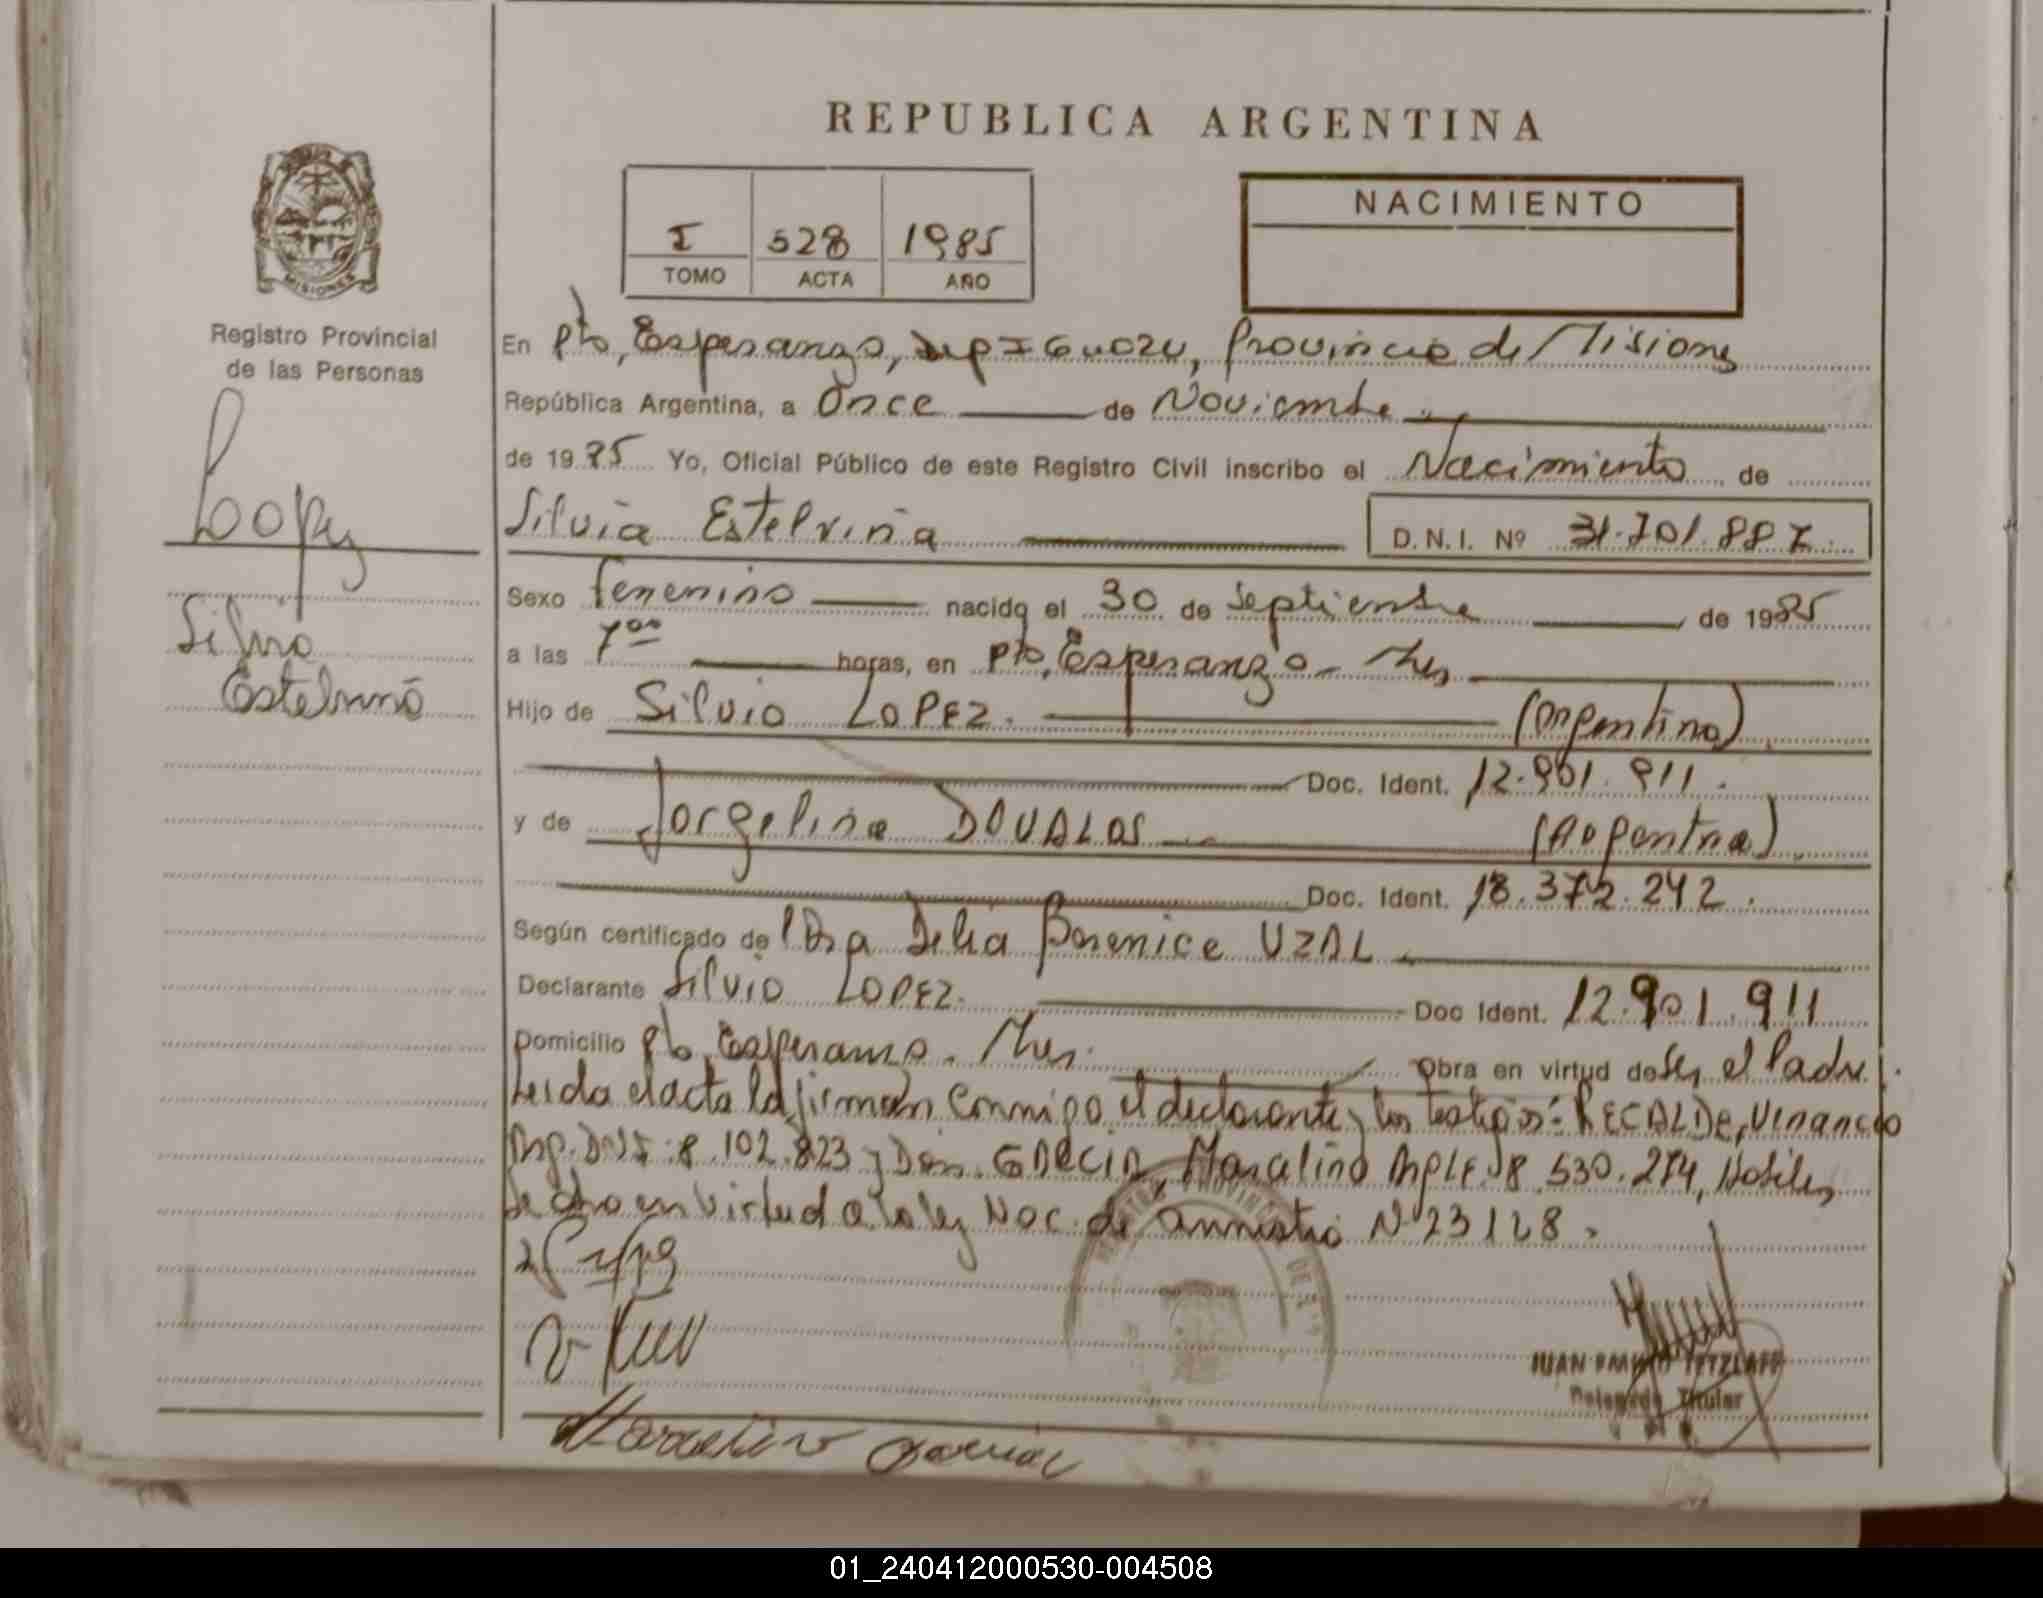 REPUBLICA ARGENTINA
I 528 1985
TOMO ACTA AÑO
NACIMIENTO
MISIONES
Registro Provincial
de las Personas
Lopez
Silvia
Estelvina
En Pto, Esperanza, Dep IGUAZU, Provincia de Misiones
República Argentina, a Once de Noviembre
de 1985 Yo, Oficial Público de este Registro Civil inscribo el Nacimiento de
Silvia Estelvina D.N.I. Nº 31.701.887
Sexo femenino nacida el 30 de Septiembre de 1985
a las 7 00 horas, en Pto, Esperanza - Mnes
Hijo de Silvio LOPEZ. (Argentino)
Doc. Ident. 12.901.911.
y de Jorgelina DOVALOS (Argentina)
Doc. Ident. 18.372.242.
Según certificado de Dra Delia Berenice UZAL
Declarante Silvio LOPEZ. Doc Ident. 12.901.911
Domicilio Pto, Esperanza. Mnes. Obra en virtud de Ser el Padre.
Leida el acta la firman conmigo el declarante y los testigos: RECALDE, Venancio
Arg. DNI: 8.102.823 y Don. GARCIA, Marcelino Arg LE. 8.530.274, Hábiles
de otro en virtud a la ley Nac. de amnistia Nº 23128.
Marcelino Garcia
JUAN TETZLAFF
Delegado Titular
01_240412000530-004508